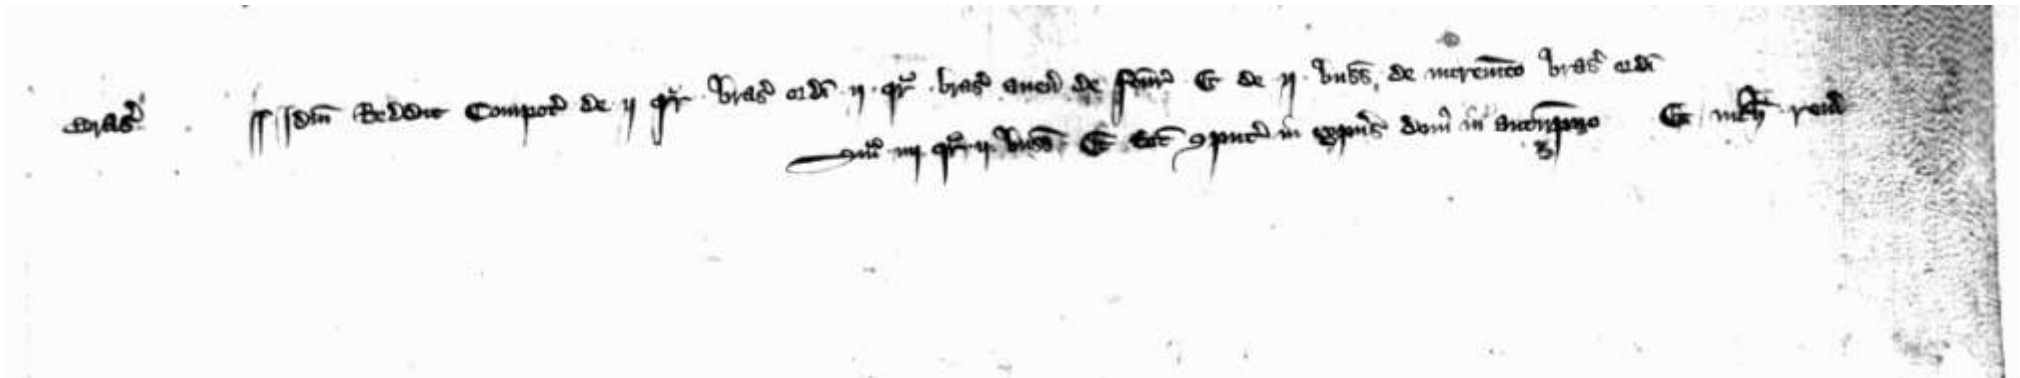 Bras' Idem Reddunt Compot' de ij qr' bras' ordi ij qr' bras' auen' de Et de ij buss' de incremento bras' ordi
Sum' iiij qr' ij buss' Et Comput' in expens' domi' in autumpno Et nichil reman'